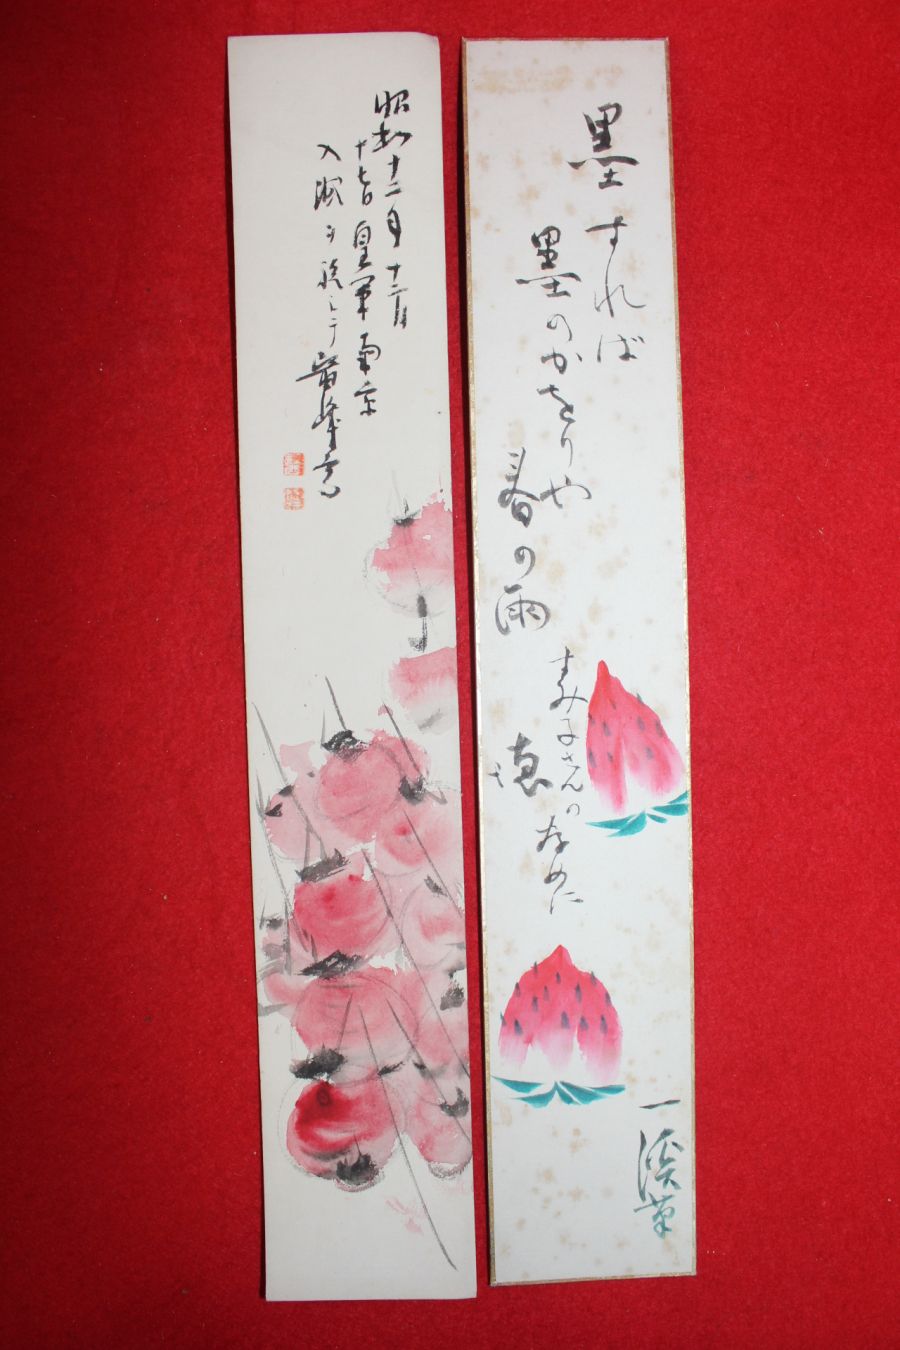 昭和十二年十二月
十七日皇軍南京
入城
墨すれば
墨のかをりや
春の雨
すみ子さんのために
一渓